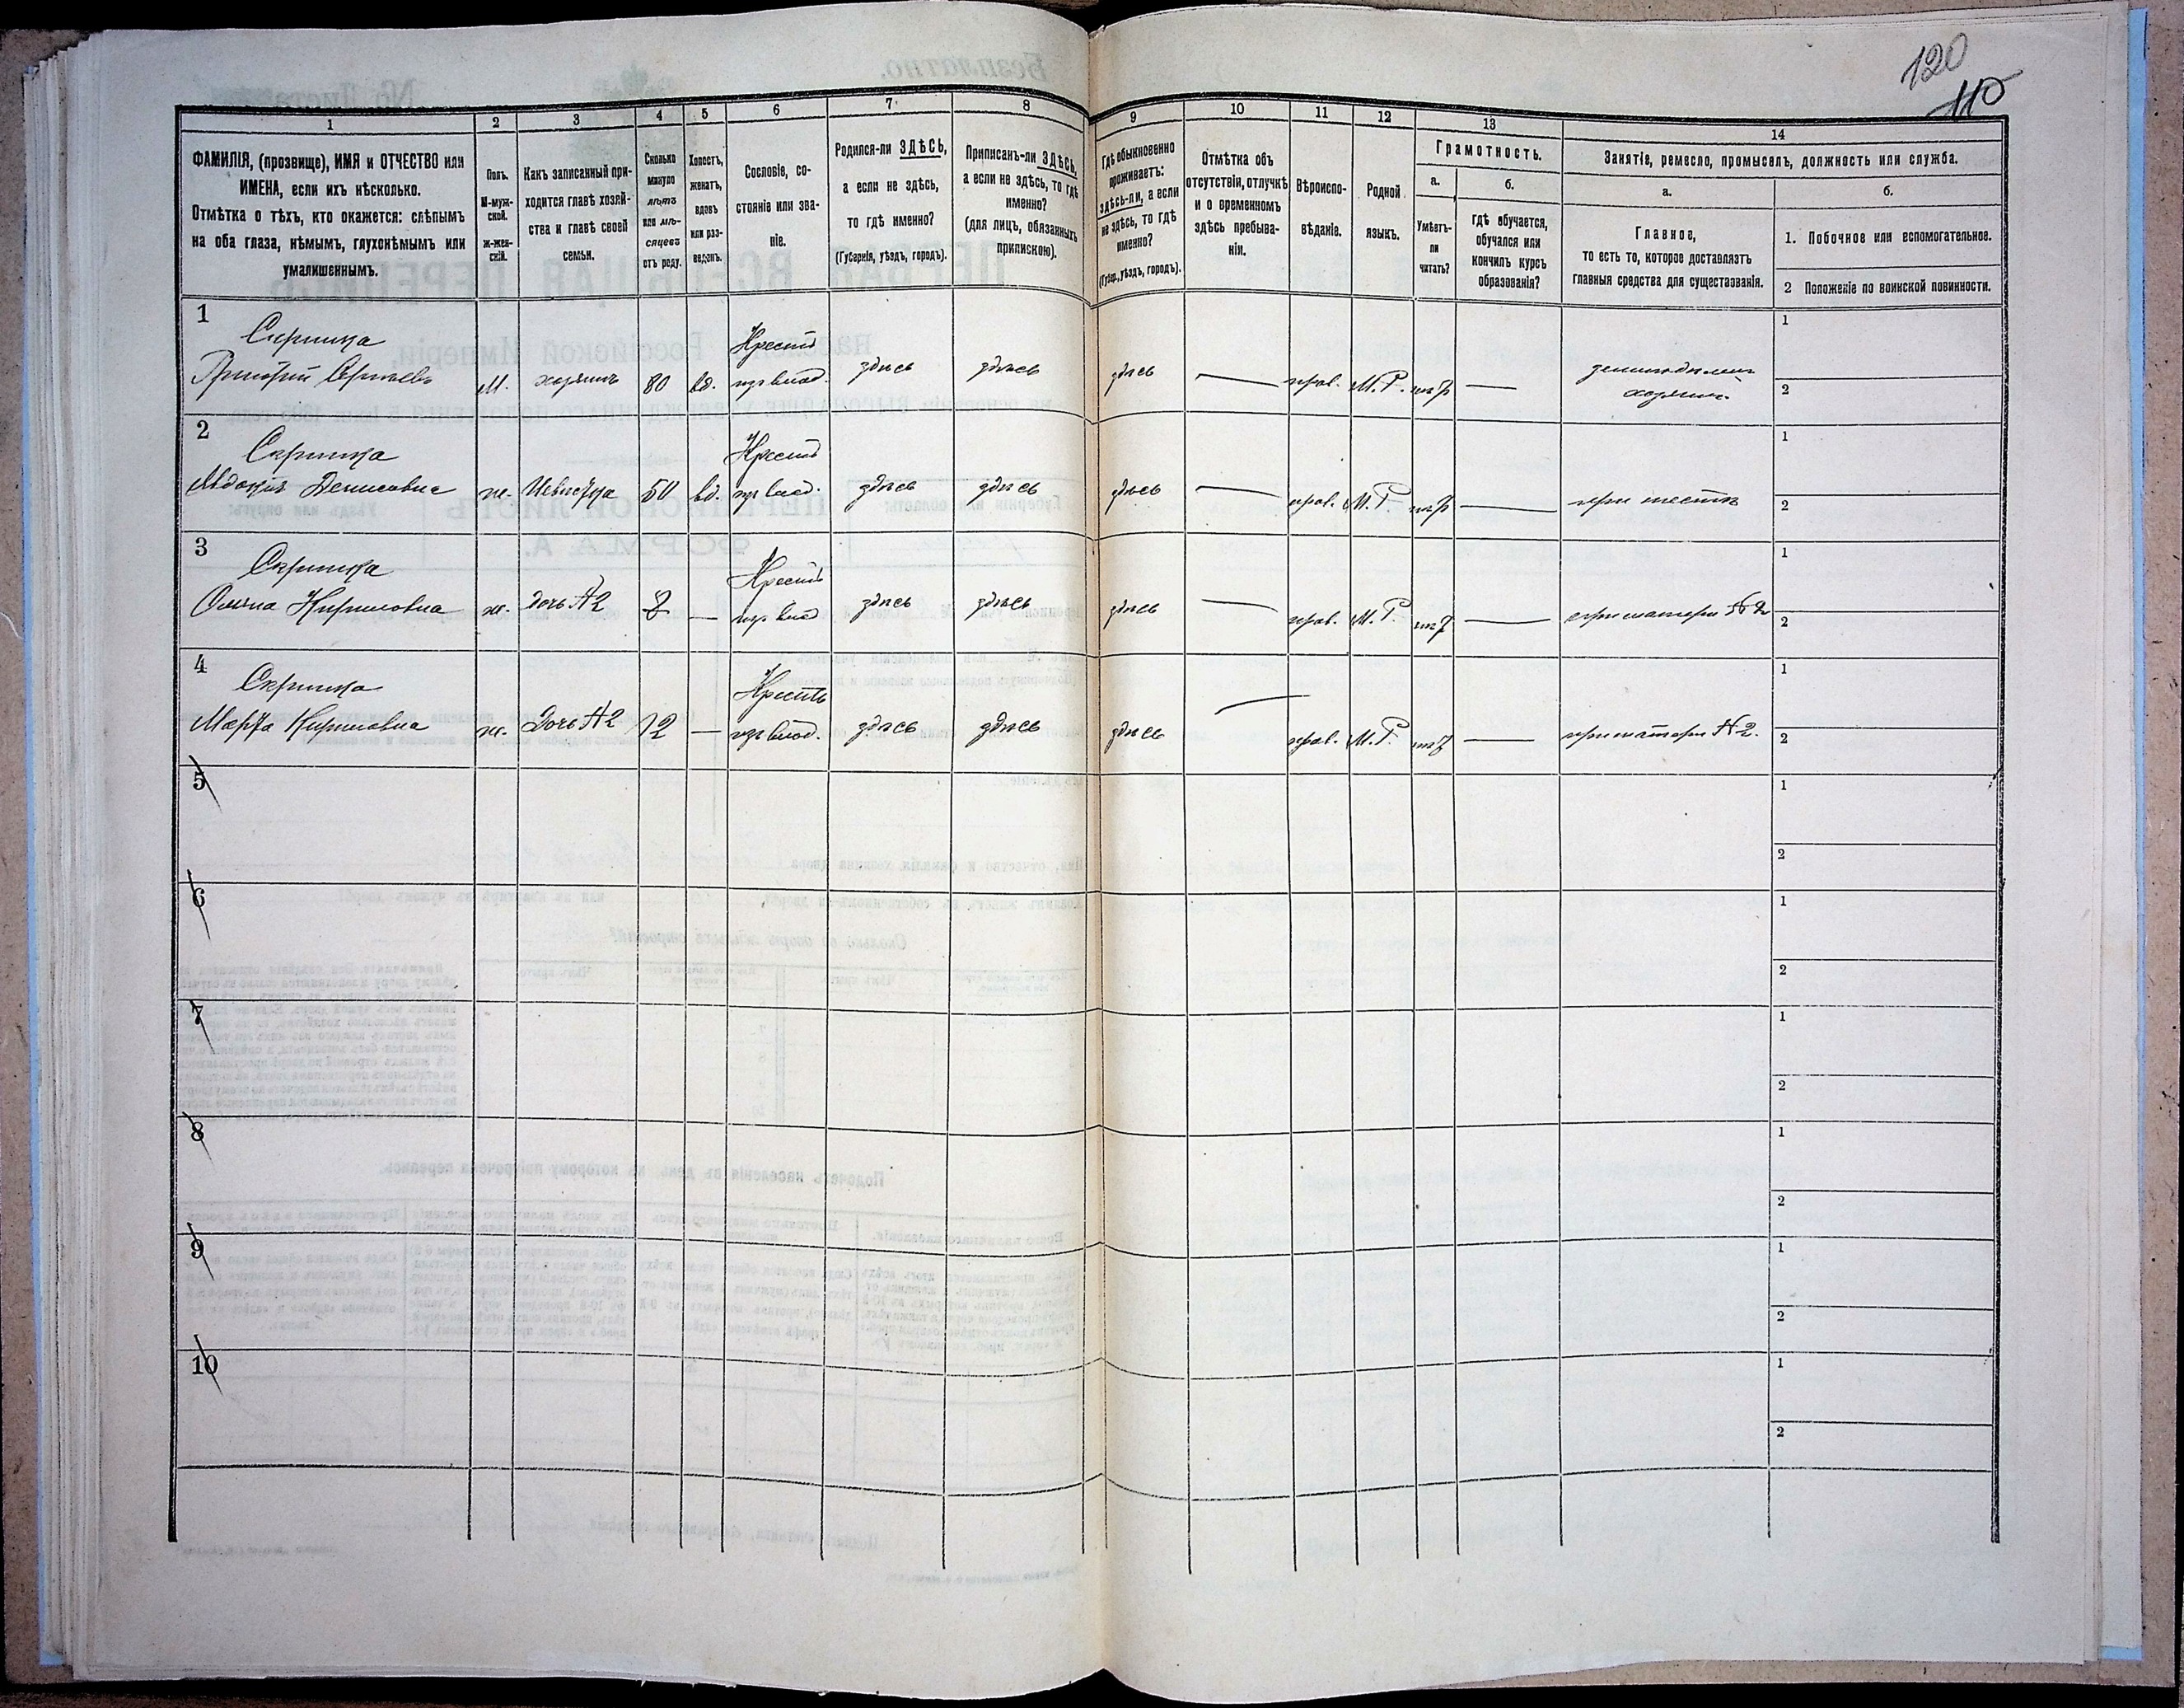 120
110
1
2
3
4
5
6
7
8
9
10
11
12
13
14
ФАМИЛІЯ, (прозвище), ИМЯ и ОТЧЕСТВО или
ИМЕНА, если ихъ нѣсколько.
Отмѣтка о тѣхъ, кто окажется: слѣпымъ
на оба глаза, нѣмымъ, глухонѣмымъ или
умалишеннымъ.
Полъ.
М-муж-
ской.
ж-жен-
скій.
Какъ записанный при-
ходится главѣ хозяй-
ства и главѣ своей
семьи.
Сколько
минуло
лѣтъ
или мѣ-
сяцевъ
отъ роду.
Холостъ,
женатъ,
вдовъ
или раз-
веденъ.
Сословіе, со-
стояніе или зва-
ніе.
Родился-ли ЗДѢСЬ,
а если не здѣсь,
то гдѣ именно?
(Губернія, уѣздъ, городъ).
Приписанъ-ли ЗДѢСЬ,
а если не здѣсь, то гдѣ
именно?
(для лицъ, обязанныхъ
припискою).
Гдѣ обыкновенно
проживаетъ:
здѣсь-ли, а если
не здѣсь, то гдѣ
именно?
(Губер., уѣздъ, городъ).
Отмѣтка объ
отсутствіи, отлучкѣ
и о временномъ
здѣсь пребыва-
ніи.
Вѣроиспо-
вѣданіе.
Родной
языкъ.
Грамотность.
а.
Умѣетъ-
ли
читать?
б.
гдѣ обучается,
обучался или
кончилъ курсъ
образованія?
Занятіе, ремесло, промыселъ, должность или служба.
а.
Главное,
то есть то, которое доставляэтъ
главныя средства для существованія.
б.
1. Побочное или вспомогательное.
2 Положеніе по воинской повинности.
1
Скрипка
Крест
1
Григорій
м. хозяинъ 80 вд. изъ влад. здѣсь здѣсь здѣсь — прав. М.Р. — земледѣлецъ
хозяинъ
2
2
Скрипка
Крест
1
Авдокія Денисовна ж. Невѣстка 50 вд. изъ влад. здѣсь здѣсь здѣсь — прав. М.Р. — при тестѣ
2
3
Скрипка
Крест
1
Кириловна ж. дочь №2 — изъ влад здѣсь здѣсь здѣсь — прав. М.Р. — при матери №2
2
4
Скрипка
Крестъ
1
Марфа Кириловна ж. Дочь №2 12 — изъ влад. здѣсь здѣсь здѣсь — прав. М.Р. — при матери №2.
2
5
1
2
6
1
2
7
1
2
8
1
2
9
1
2
10
1
2